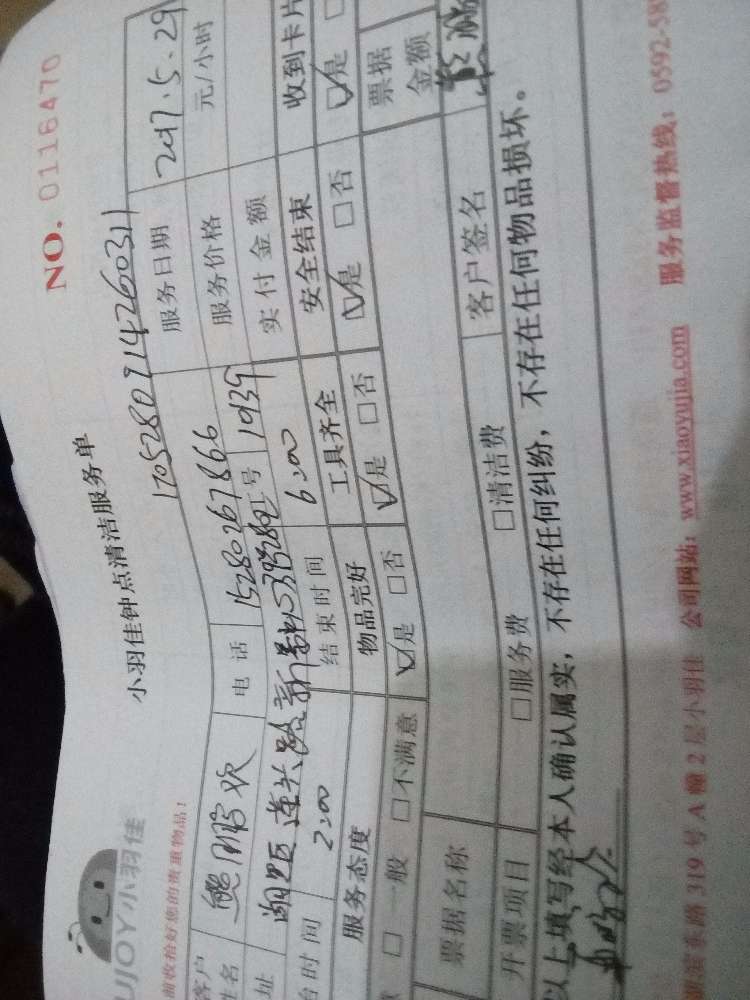 NO. 0116470
小羽佳钟点清洁服务单
UJOY小羽佳
1705280714260311
前收拾好您的贵重物品!
客户姓名 熊鹏欢 电话 15280267866 服务日期 2017.5.29
址 1939 服务价格 元/小时
始时间 2:00 结束时间 6:00 实付金额
服务态度 物品完好 工具齐全 安全结束 收到卡片
□一般 □不满意 ☑是 □否 ☑是 □否 ☑是 □否 ☑是
票据名称 票据金额
开票项目 □服务费 □清洁费 客户签名
以上填写经本人确认属实,不存在任何纠纷,不存在任何物品损坏。
东路 319 号 A 幢 2 层小羽佳 公司网站:www.xiaoyujia.com 服务监督热线:0592-58